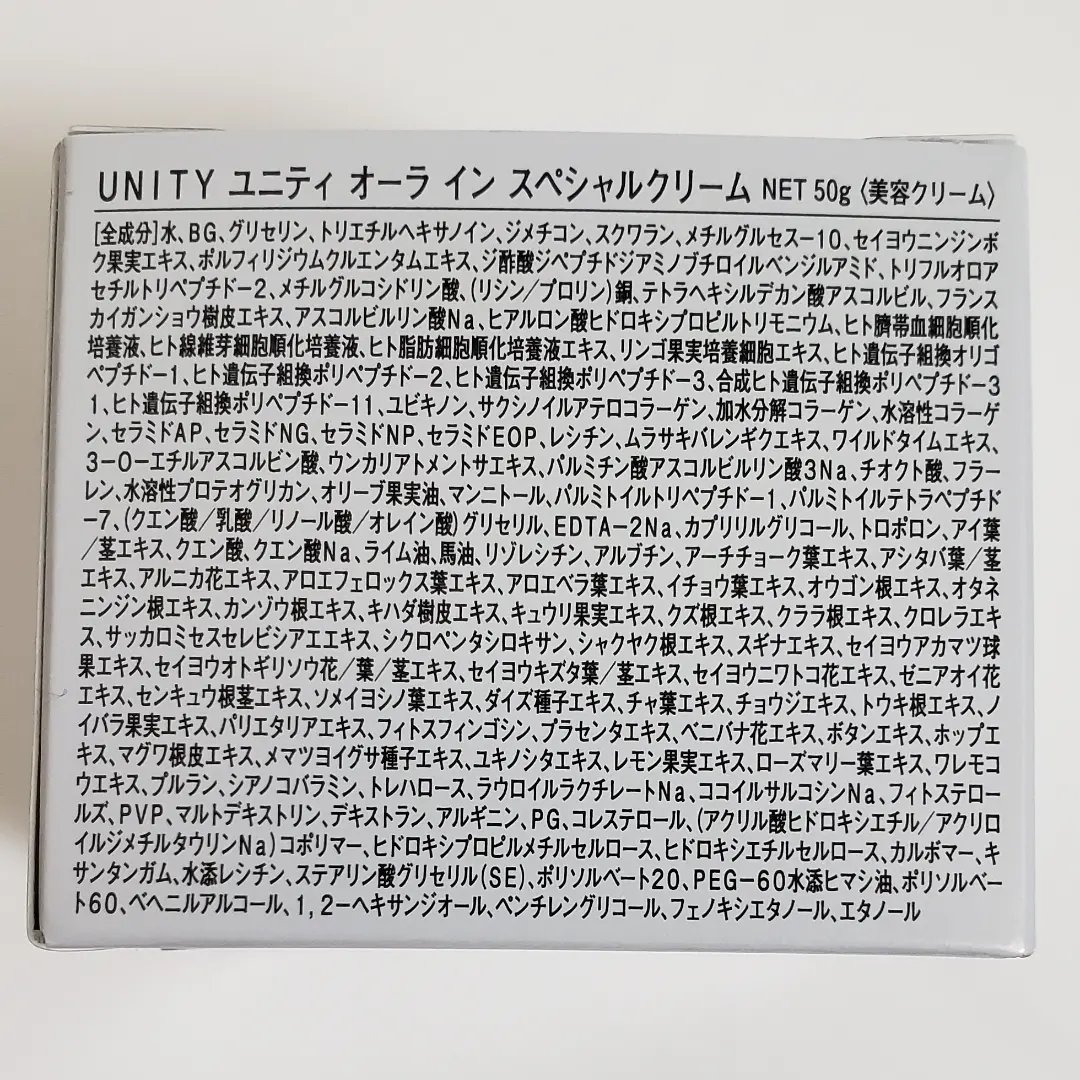 UNITY ユニティ オーラ イン スペシャルクリーム NET 50g 〈美容クリーム〉
[全成分]水、BG、グリセリン、トリエチルヘキサノイン、ジメチコン、スクワラン、メチルグルセス-10、セイヨウニンジンボ
ク果実エキス、ポルフィリジウムクルエンタムエキス、ジ酢酸ジペプチドジアミノブチロイルベンジルアミド、トリフルオロア
セチルトリペプチド-2、メチルグルコシドリン酸、(リシン/プロリン)銅、テトラヘキシルデカン酸アスコルビル、フランス
カイガンショウ樹皮エキス、アスコルビルリン酸Na、ヒアルロン酸ヒドロキシプロピルトリモニウム、ヒト臍帯血細胞順化
培養液、ヒト線維芽細胞順化培養液、ヒト脂肪細胞順化培養液エキス、リンゴ果実培養細胞エキス、ヒト遺伝子組換オリゴ
ペプチド-1、ヒト遺伝子組換ポリペプチド-2、ヒト遺伝子組換ポリペプチド-3、合成ヒト遺伝子組換ポリペプチド-3
1、ヒト遺伝子組換ポリペプチド-11、ユビキノン、サクシノイルアテロコラーゲン、加水分解コラーゲン、水溶性コラーゲ
ン、セラミドAP、セラミドNG、セラミドNP、セラミドEOP、レシチン、ムラサキバレンギクエキス、ワイルドタイムエキス、
3-O-エチルアスコルビン酸、ウンカリアトメントサエキス、パルミチン酸アスコルビルリン酸3Na、チオクト酸、フラー
レン、水溶性プロテオグリカン、オリーブ果実油、マンニトール、パルミトイルトリペプチド-1、パルミトイルテトラペプチド
-7、(クエン酸/乳酸/リノール酸/オレイン酸)グリセリル、EDTA-2Na、カプリリルグリコール、トロポロン、アイ葉
/茎エキス、クエン酸、クエン酸Na、ライム油、馬油、リゾレシチン、アルブチン、アーチチョーク葉エキス、アシタバ葉/茎
エキス、アルニカ花エキス、アロエフェロックス葉エキス、アロエベラ葉エキス、イチョウ葉エキス、オウゴン根エキス、オタネ
ニンジン根エキス、カンゾウ根エキス、キハダ樹皮エキス、キュウリ果実エキス、クズ根エキス、クララ根エキス、クロレラエキ
ス、サッカロミセスセレビシアエエキス、シクロペンタシロキサン、シャクヤク根エキス、スギナエキス、セイヨウアカマツ球
果エキス、セイヨウオトギリソウ花/葉/茎エキス、セイヨウキズタ葉/茎エキス、セイヨウニワトコ花エキス、ゼニアオイ花
エキス、センキュウ根茎エキス、ソメイヨシノ葉エキス、ダイズ種子エキス、チャ葉エキス、チョウジエキス、トウキ根エキス、ノ
イバラ果実エキス、パリエタリアエキス、フィトスフィンゴシン、プラセンタエキス、ベニバナ花エキス、ボタンエキス、ホップエ
キス、マグワ根皮エキス、メマツヨイグサ種子エキス、ユキノシタエキス、レモン果実エキス、ローズマリー葉エキス、ワレモコ
ウエキス、プルラン、シアノコバラミン、トレハロース、ラウロイルラクチレートNa、ココイルサルコシンNa、フィトステロ
ールズ、PVP、マルトデキストリン、デキストラン、アルギニン、PG、コレステロール、(アクリル酸ヒドロキシエチル/アクリロ
イルジメチルタウリンNa)コポリマー、ヒドロキシプロピルメチルセルロース、ヒドロキシエチルセルロース、カルボマー、キ
サンタンガム、水添レシチン、ステアリン酸グリセリル(SE)、ポリソルベート20、PEG-60水添ヒマシ油、ポリソルベー
ト60、ベヘニルアルコール、1,2-ヘキサンジオール、ペンチレングリコール、フェノキシエタノール、エタノール